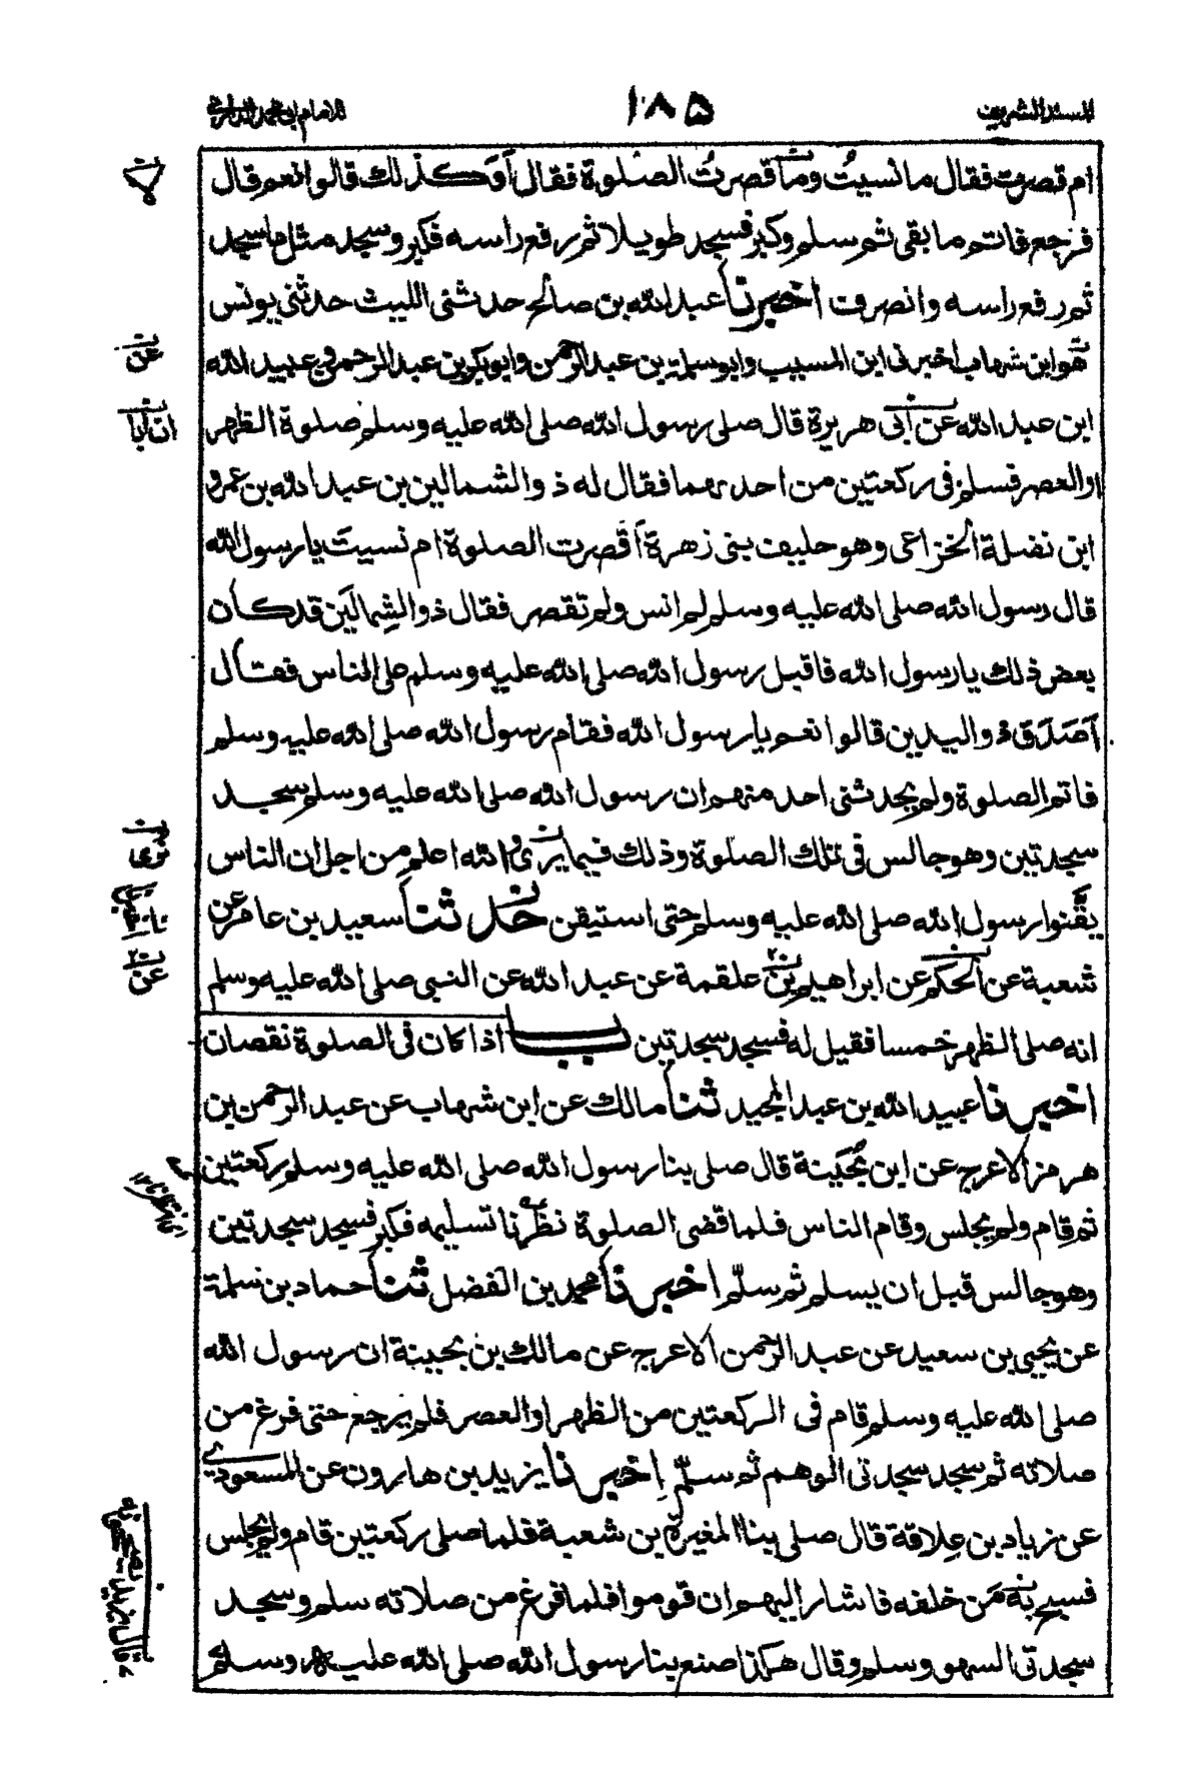 المسند الشريف
١٨٥
للامام ابى محمد الدارمى
ام قصرت فقال ما نسيتُ وما قصرتُ الصلوة فقال أَوَكذلك قالوا نعم قال
لا
فرجع فاتم ما بقى ثم سلم وكبر فسجد طويلا ثم رفع راسه فكبر وسجد مثل ما سجد
ثم رفع راسه وانصرف اخبرنا عبد الله بن صالح حدثنى الليث حدثنى يونس
هو ابن شهاب اخبرنى ابن المسيب وابو سلمة بن عبد الرحمن وابو بكر بن عبد الرحمن وعبيد الله
عن
ابن عبد الله عن ابى هريرة قال صلى رسول الله صلى الله عليه وسلم صلوة الظهر
ان ابا
او العصر فسلم فى ركعتين من احدهما فقال له ذو الشمالين بن عبد الله بن عمرو
ابن نضلة الخزاعى وهو حليف بنى زهرة أقصرت الصلوة ام نسيتَ يا رسول الله
قال رسول الله صلى الله عليه وسلم لم انس ولم تقصر فقال ذو الشمالَين قد كان
بعض ذلك يا رسول الله فاقبل رسول الله صلى الله عليه وسلم على الناس فقال
أصَدَقَ ذو اليدين قالوا نعم يا رسول الله فقام رسول الله صلى الله عليه وسلم
فاتم الصلوة ولم يحدثنى احد منهم ان رسول الله صلى الله عليه وسلم سجد
سجدتين وهو جالس فى تلك الصلوة وذلك فيما يرى والله اعلم من اجل ان الناس
نرى
يقَّنوا رسول الله صلى الله عليه وسلم حتى استيقن حدثنا سعيد بن عامر عن
شعبة عن الحكم عن ابراهيم بن علقمة عن عبد الله عن النبى صلى الله عليه وسلم
عن
انه صلى الظهر خمسا فقيل له فسجد سجدتين باب اذا كان فى الصلوة نقصان
اخبرنا عبيد الله بن عبد المجيد ثنا مالك عن ابن شهاب عن عبد الرحمن بن
هرمز الاعرج عن ابن بُحَينة قال صلى بنا رسول الله صلى الله عليه وسلم ركعتين
ثم قام ولم يجلس وقام الناس فلما قضى الصلوة نظرنا تسليمه فكبر فسجد سجدتين
وهو جالس قبل ان يسلم ثم سلّم اخبرنا محمد بن الفضل ثنا حماد بن سلمة
عن يحيى بن سعيد عن عبد الرحمن الاعرج عن مالك بن بحينة ان رسول الله
صلى الله عليه وسلم قام فى الركعتين من الظهر او العصر فلم يرجع حتى فرغ من
صلاته ثم سجد سجدتى الوهم ثم سلّم اخبرنا يزيد بن هارون عن المسعودى
عن زياد بن عِلاقة قال صلى بنا المغيرة بن شعبة فلما صلى ركعتين قام ولم يجلس
فسبح به مَن خلفه فاشار اليهم ان قوموا فلما فرغ من صلاته سلم وسجد
سجدتى السهو وسلم وقال هكذا صنع بنا رسول الله صلى الله عليه وسلم